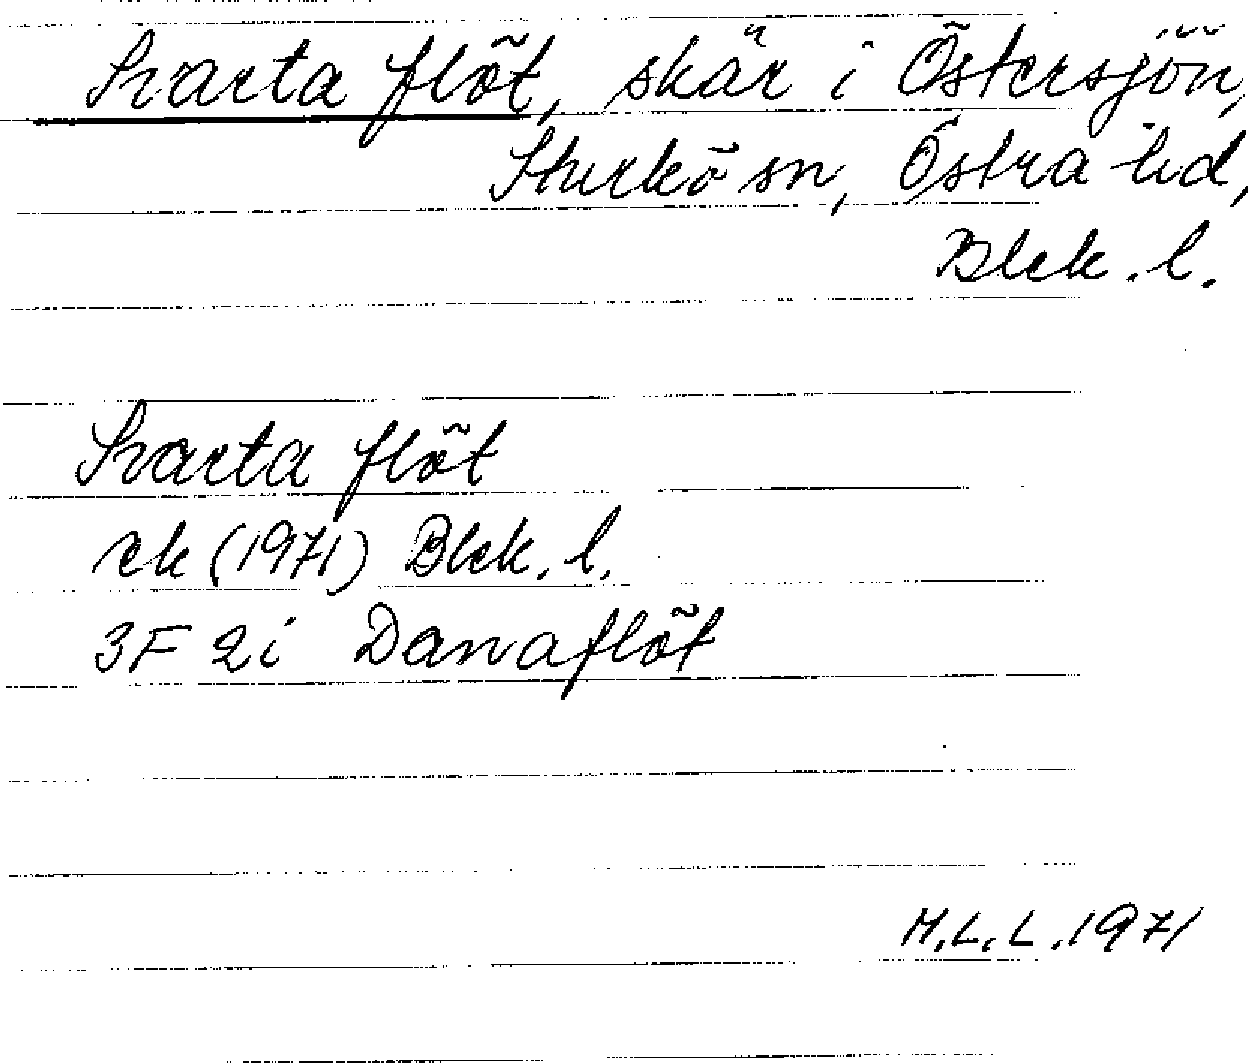 Svarta flöt, skär i Östersjön,
Sturkö sn, Östra hd,
Blek. l.
Svarta flöt
ek (1971) Blek. l.
3F 2i Danaflöt
M.L.L. 1971